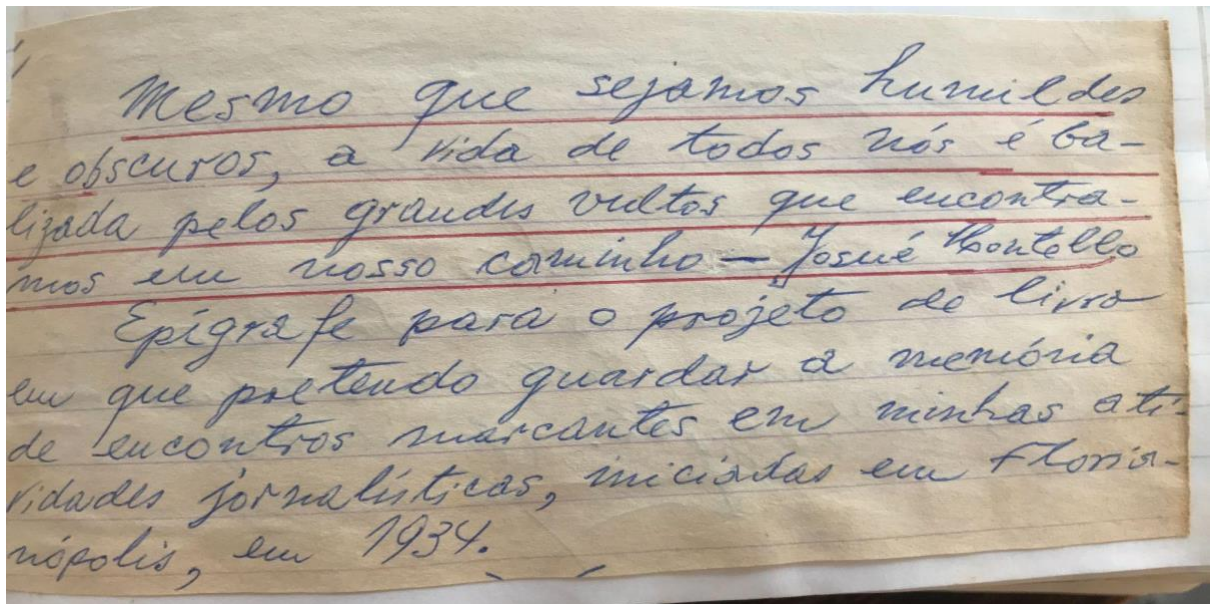 Mesmo que sejamos humildes
e obscuros, a vida de todos nós é ba-
lizada pelos grandes vultos que encontra-
mos em nosso caminho — Josué Montello
Epígrafe para o projeto de livro
em que pretendo guardar a memória
de encontros marcantes em minhas ati-
vidades jornalísticas, iniciadas em Floria-
nópolis, em 1934.